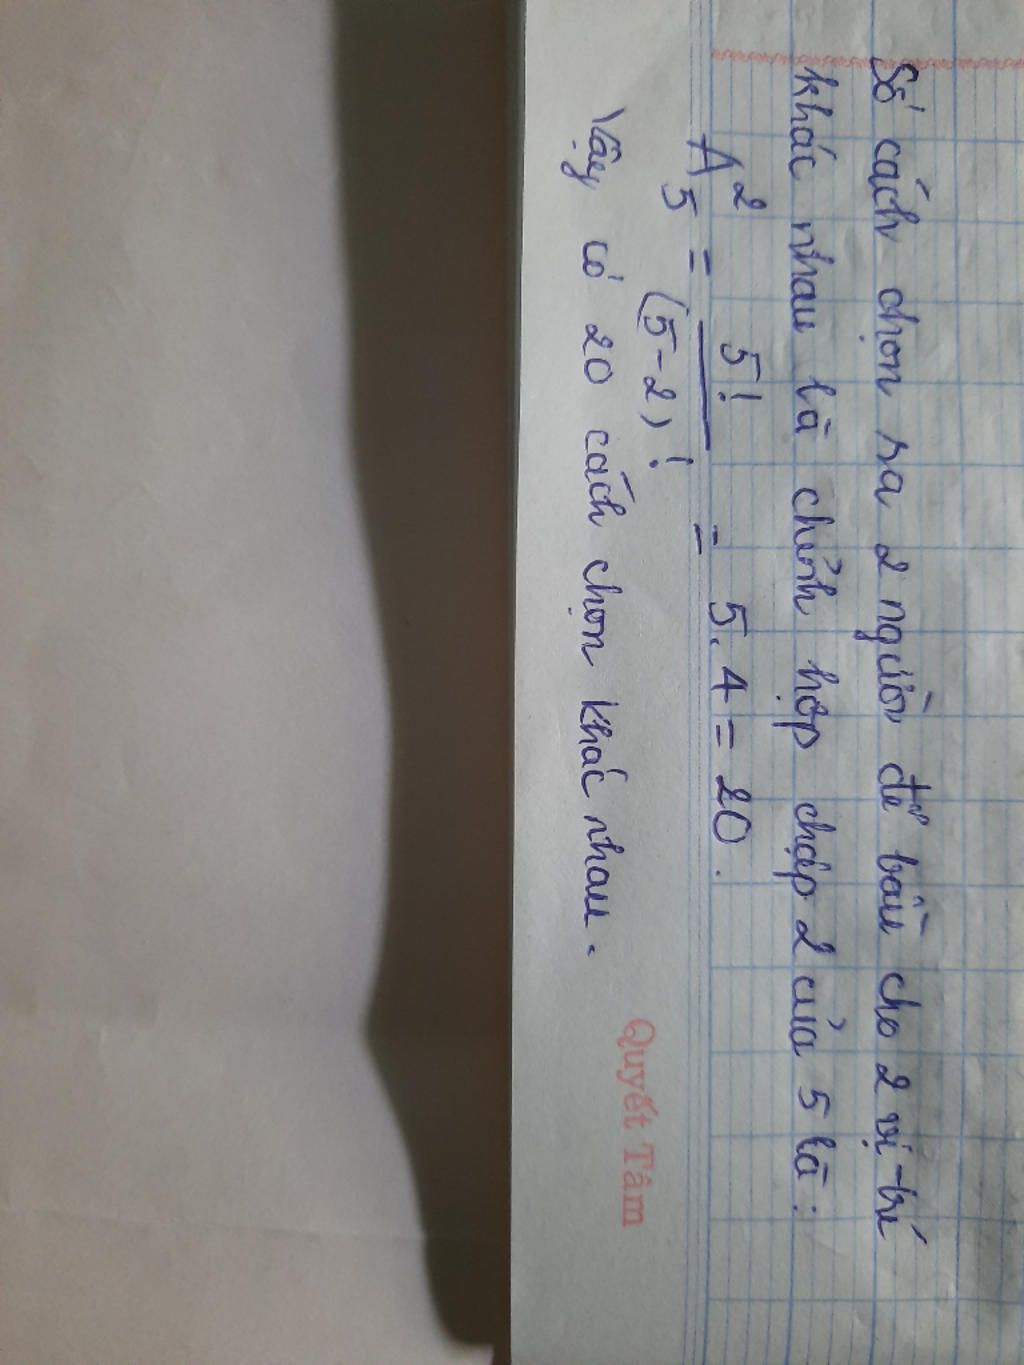 Số cách chọn ra 2 người để bầu cho 2 vị trí
khác nhau là chỉnh hợp chập 2 của 5 là:
A²₅ = 5!/(5-2)! = 5.4 = 20.
Vậy có 20 cách chọn khác nhau.
Quyết Tâm